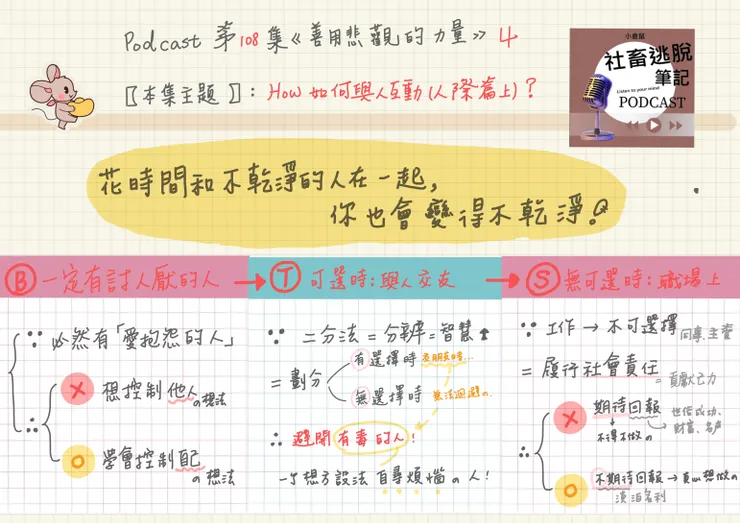 Podcast 第108集《善用悲觀的力量》4
〖本集主題〗：How 如何與人互動(人際篇上)？
小倉鼠
社畜逃脫
筆記
Listen to your mind
PODCAST
花時間和不乾淨的人在一起，
你也會變得不乾淨。
B 一定有討人厭的人
∵ 必然有「愛抱怨的人」
∴
X 想控制他人の想法
O 學會控制自己の想法
T 可選時：與人交友
∵ 二分法＝分辨＝智慧↑
＝劃分
有選擇時 交朋友時…
無選擇時 無法迴避の…
∴ 避開有毒的人！
想方設法自尋煩惱の人！
S 無可選時：職場上
∵ 工作→不可選擇 同事、主管
＝履行社會責任
＝貢獻己力
∴
X 期待回報 世俗成功、
財富、名聲
不得不做の
O 不期待回報→真心想做の
淡泊名利